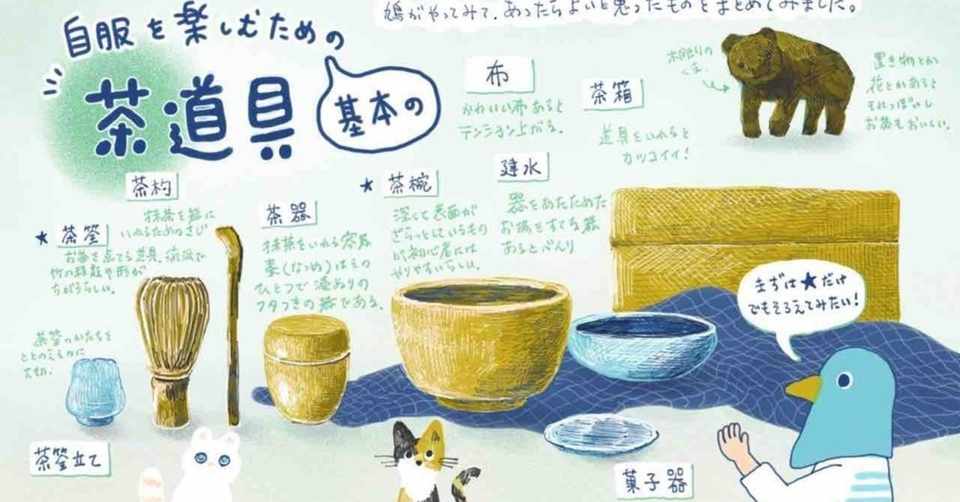 鳩がやってみて、あったらよいと思ったものをまとめてみました。
自服を楽しむための
茶道具
基本の
布
かわいい布あると
テンション上がる。
茶箱
道具をいれると
カッコイイ！
木彫りの
くま
置き物とか
花とかあると
それっぽいし
お茶もおいしい。
茶杓
抹茶を器に
いれるためのさじ
★茶筌
お茶を点てる道具。流派で
竹の種類や形が
ちがうらしい。
茶器
抹茶をいれる容器
棗(なつめ)はその
ひとつで漆ぬりの
フタつきの器である。
★茶椀
深くて表面が
ざらっとしているもの
が初心者には
やりやすいらしい。
建水
器をあたためた
お湯をすてる器
あるとべんり
まずは★だけ
でもそろえてみたい！
茶筌のかたちを
ととのえるのに
大切。
茶筌立て
菓子器